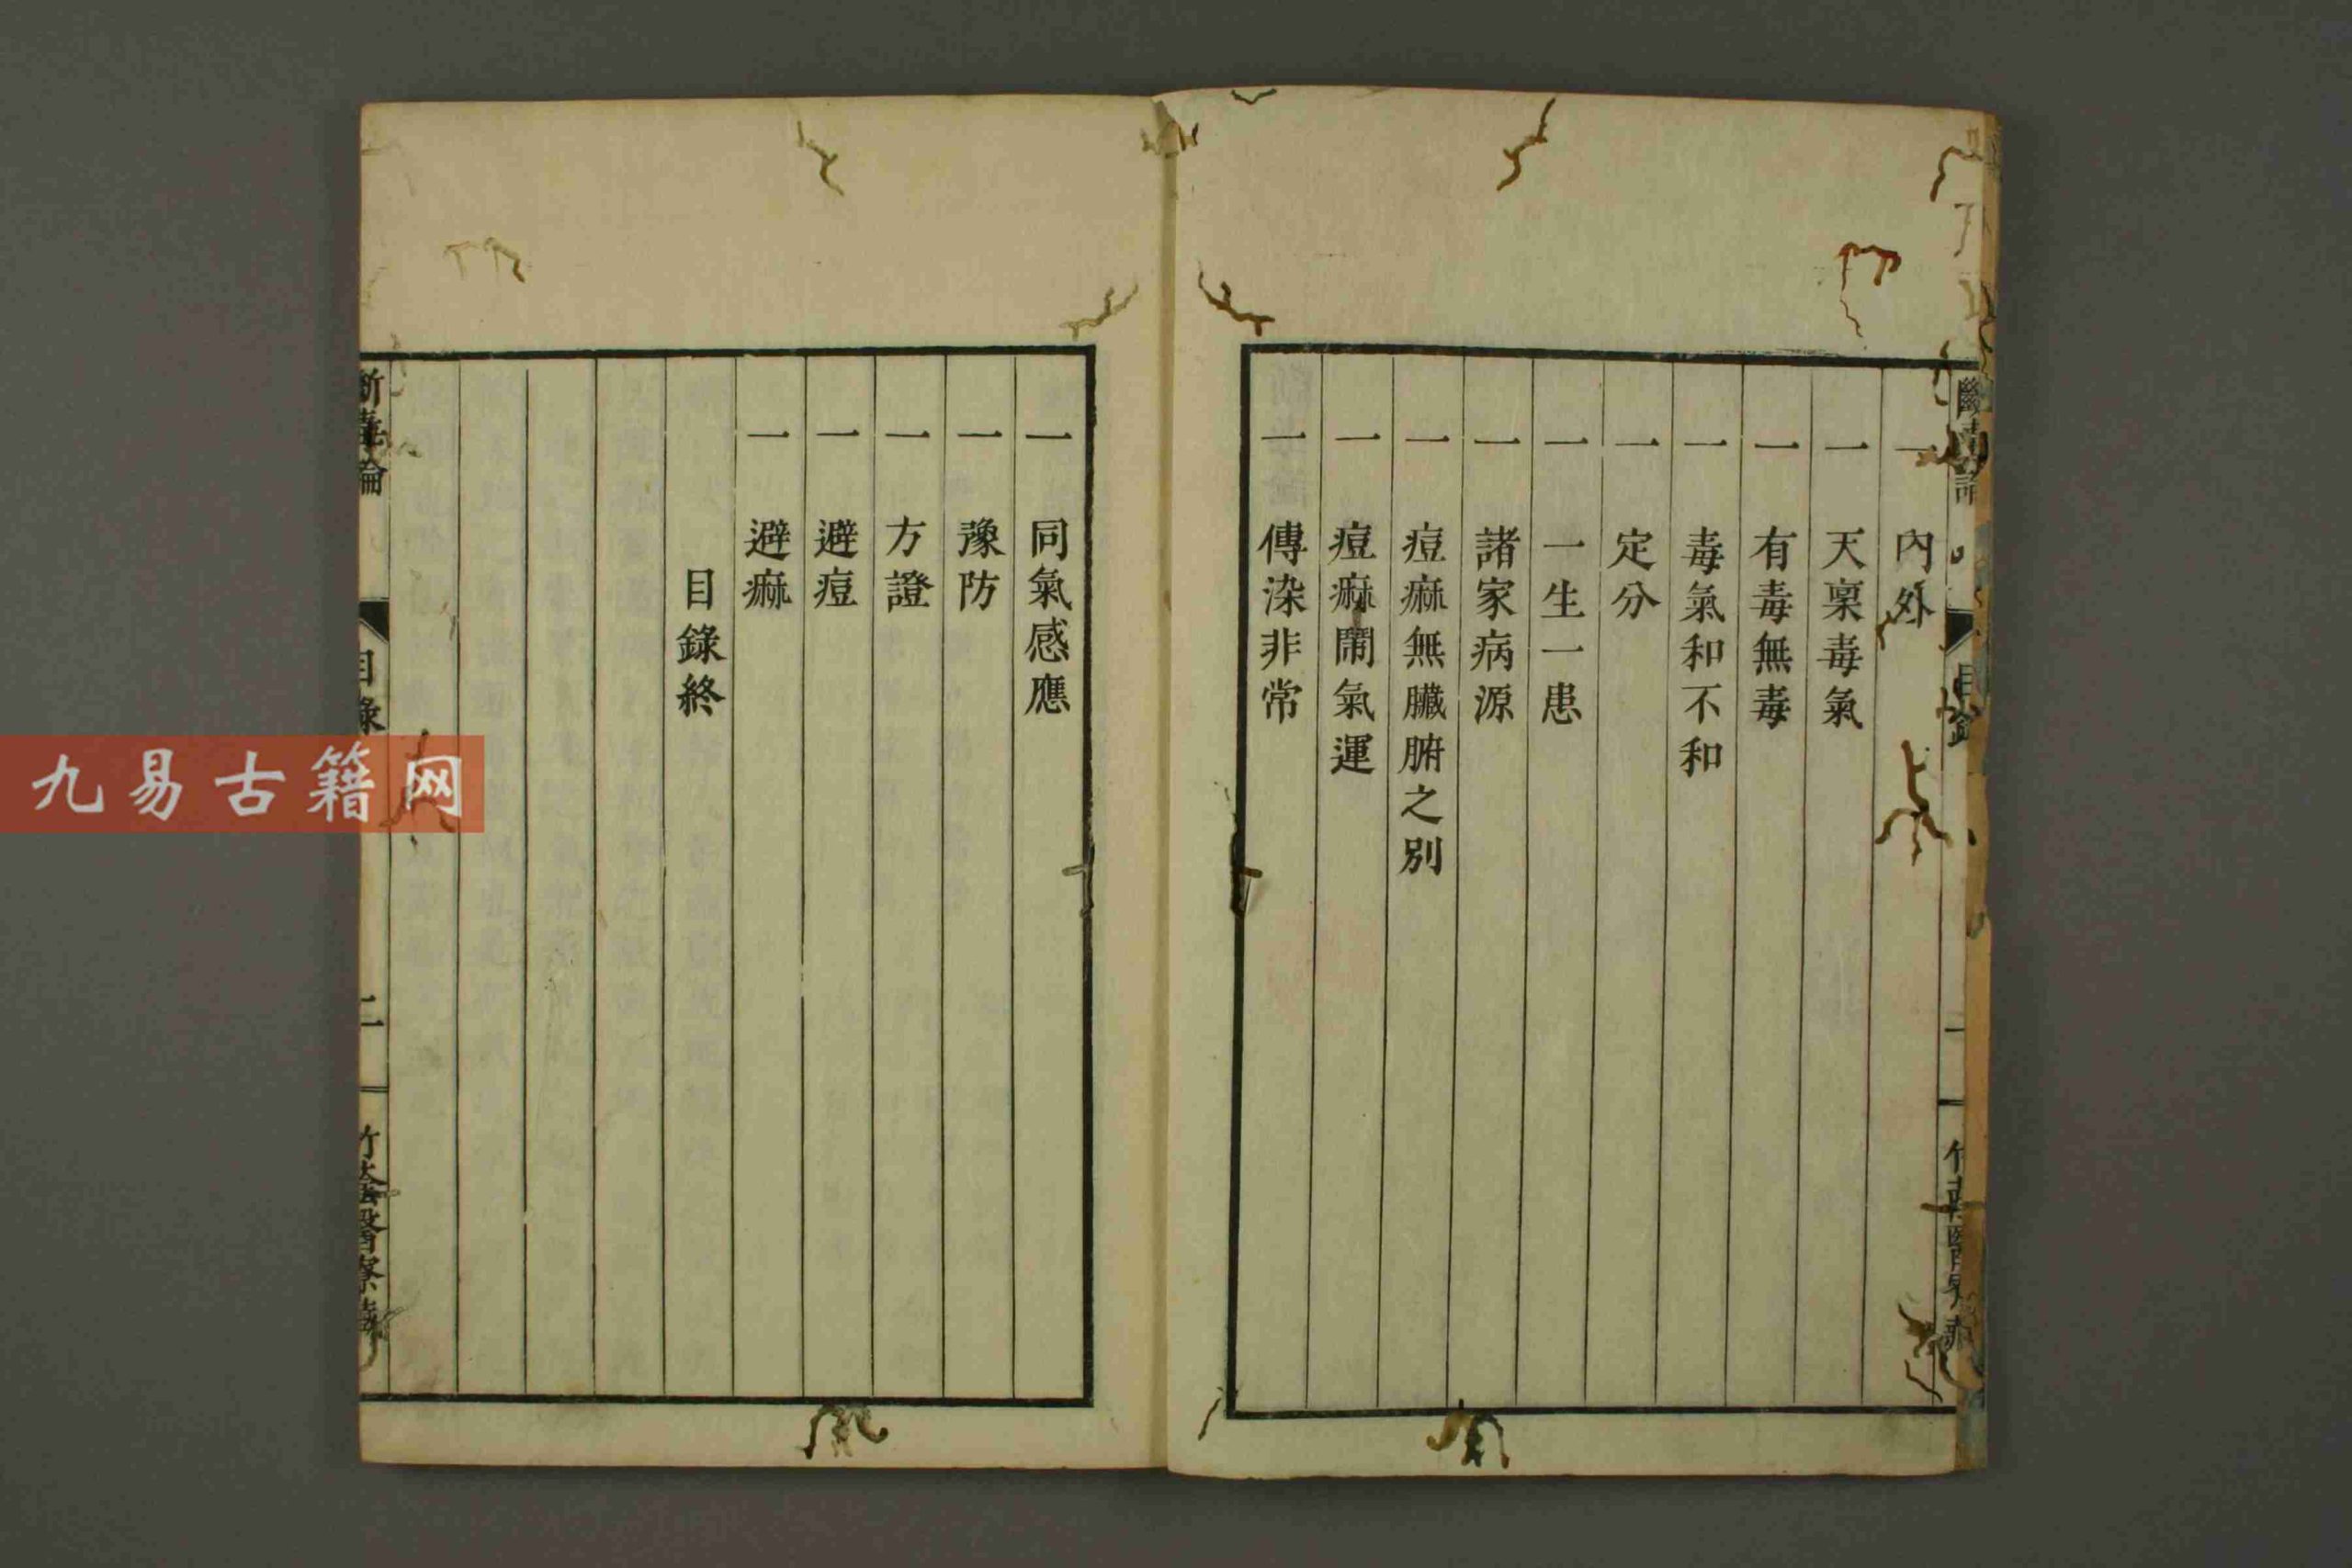 一 內外
一 天稟毒氣
一 有毒無毒
一 毒氣和不和
一 定分
一 一生一患
一 諸家病源
一 痘痳無臟腑之別
一 痘痳鬧氣運
一 傳染非常
一 同氣感應
一 豫防
一 方證
一 避痘
一 避痳
目錄終
斷毒論
目錄
二
竹蔭醫寮藏
九易古籍网